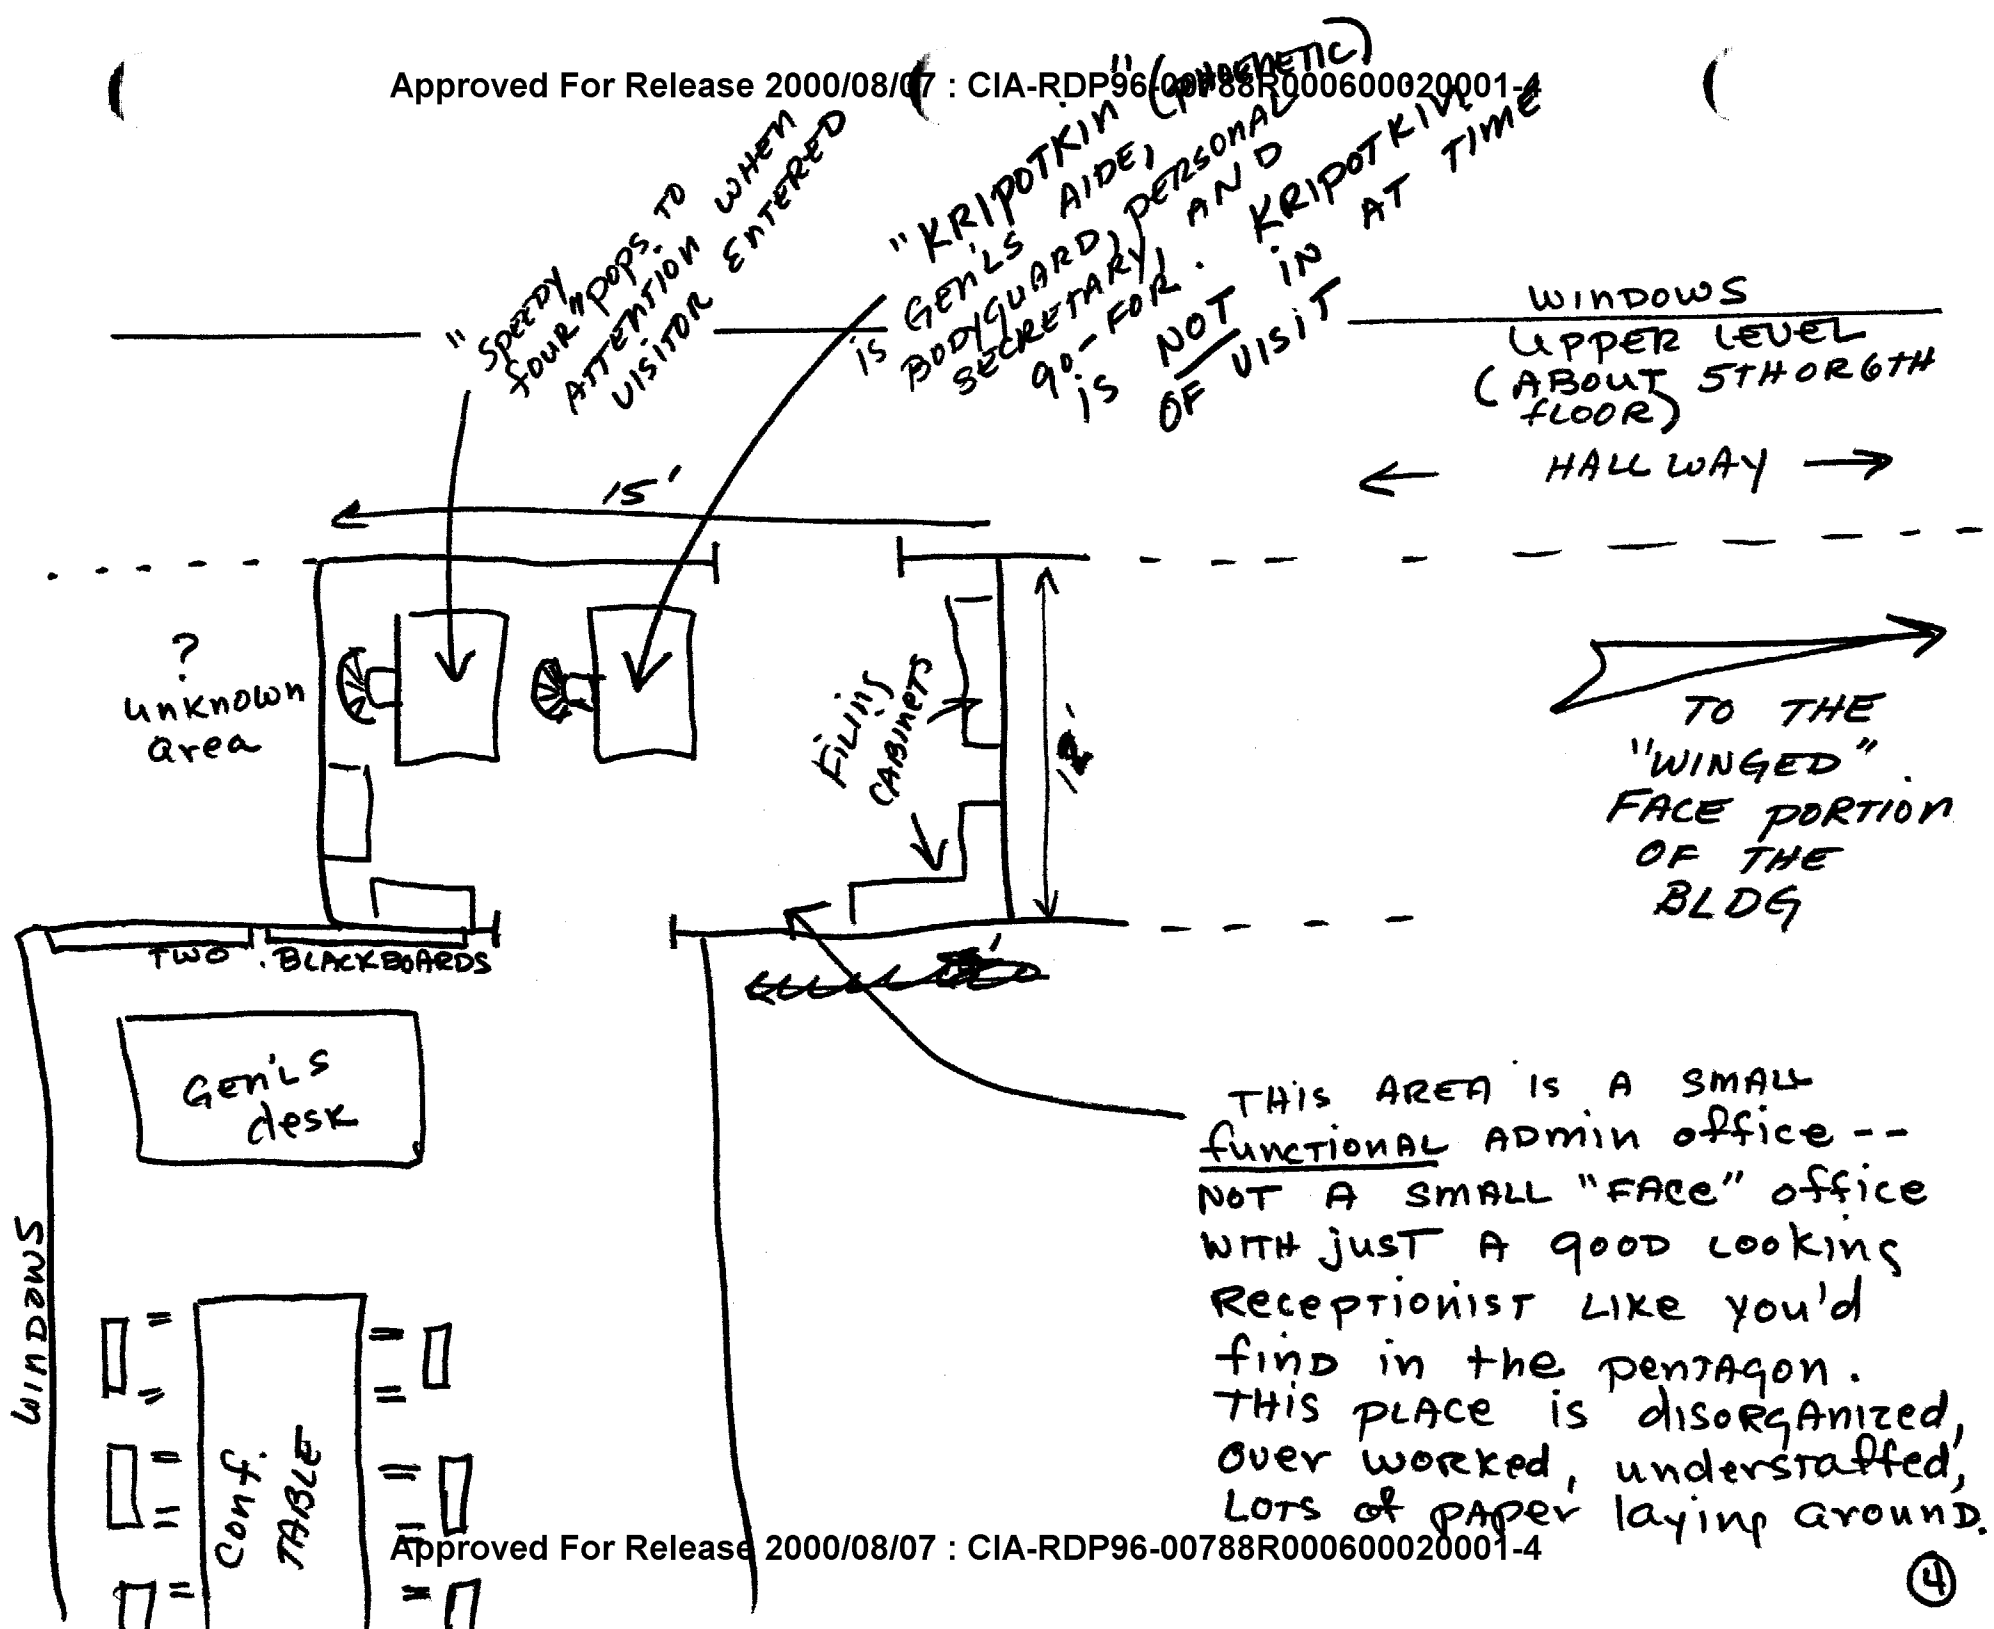 Approved For Release 2000/08/07 : CIA-RDP96-00788R000600020001-4
"SPEEDY
FOUR" POPS TO
ATTENTION WHEN
VISITOR ENTERED
"KRIPOTKIN" (PHOENETIC)
is GEN'LS AIDE,
BODYGUARD, PERSONAL
SECRETARY, AND
go-FOR. KRIPOTKIN
is NOT IN AT TIME
OF VISIT
WINDOWS
UPPER LEVEL
(ABOUT 5TH OR 6TH
FLOOR)
HALLWAY
15'
?
unknown
area
FILING
CABINETS
TO THE
"WINGED"
FACE PORTION
OF THE
BLDG
TWO BLACKBOARDS
GEN'LS
desk
WINDOWS
THIS AREA IS A SMALL
functional ADMIN office --
NOT A SMALL "FACE" office
WITH JUST A GOOD LOOKING
RECEPTIONIST LIKE YOU'D
FIND IN THE PENTAGON.
THIS PLACE IS DISORGANIZED,
OVER WORKED, UNDERSTAFFED,
LOTS OF PAPER LAYING AROUND.
Conf.
TABLE
Approved For Release 2000/08/07 : CIA-RDP96-00788R000600020001-4
4